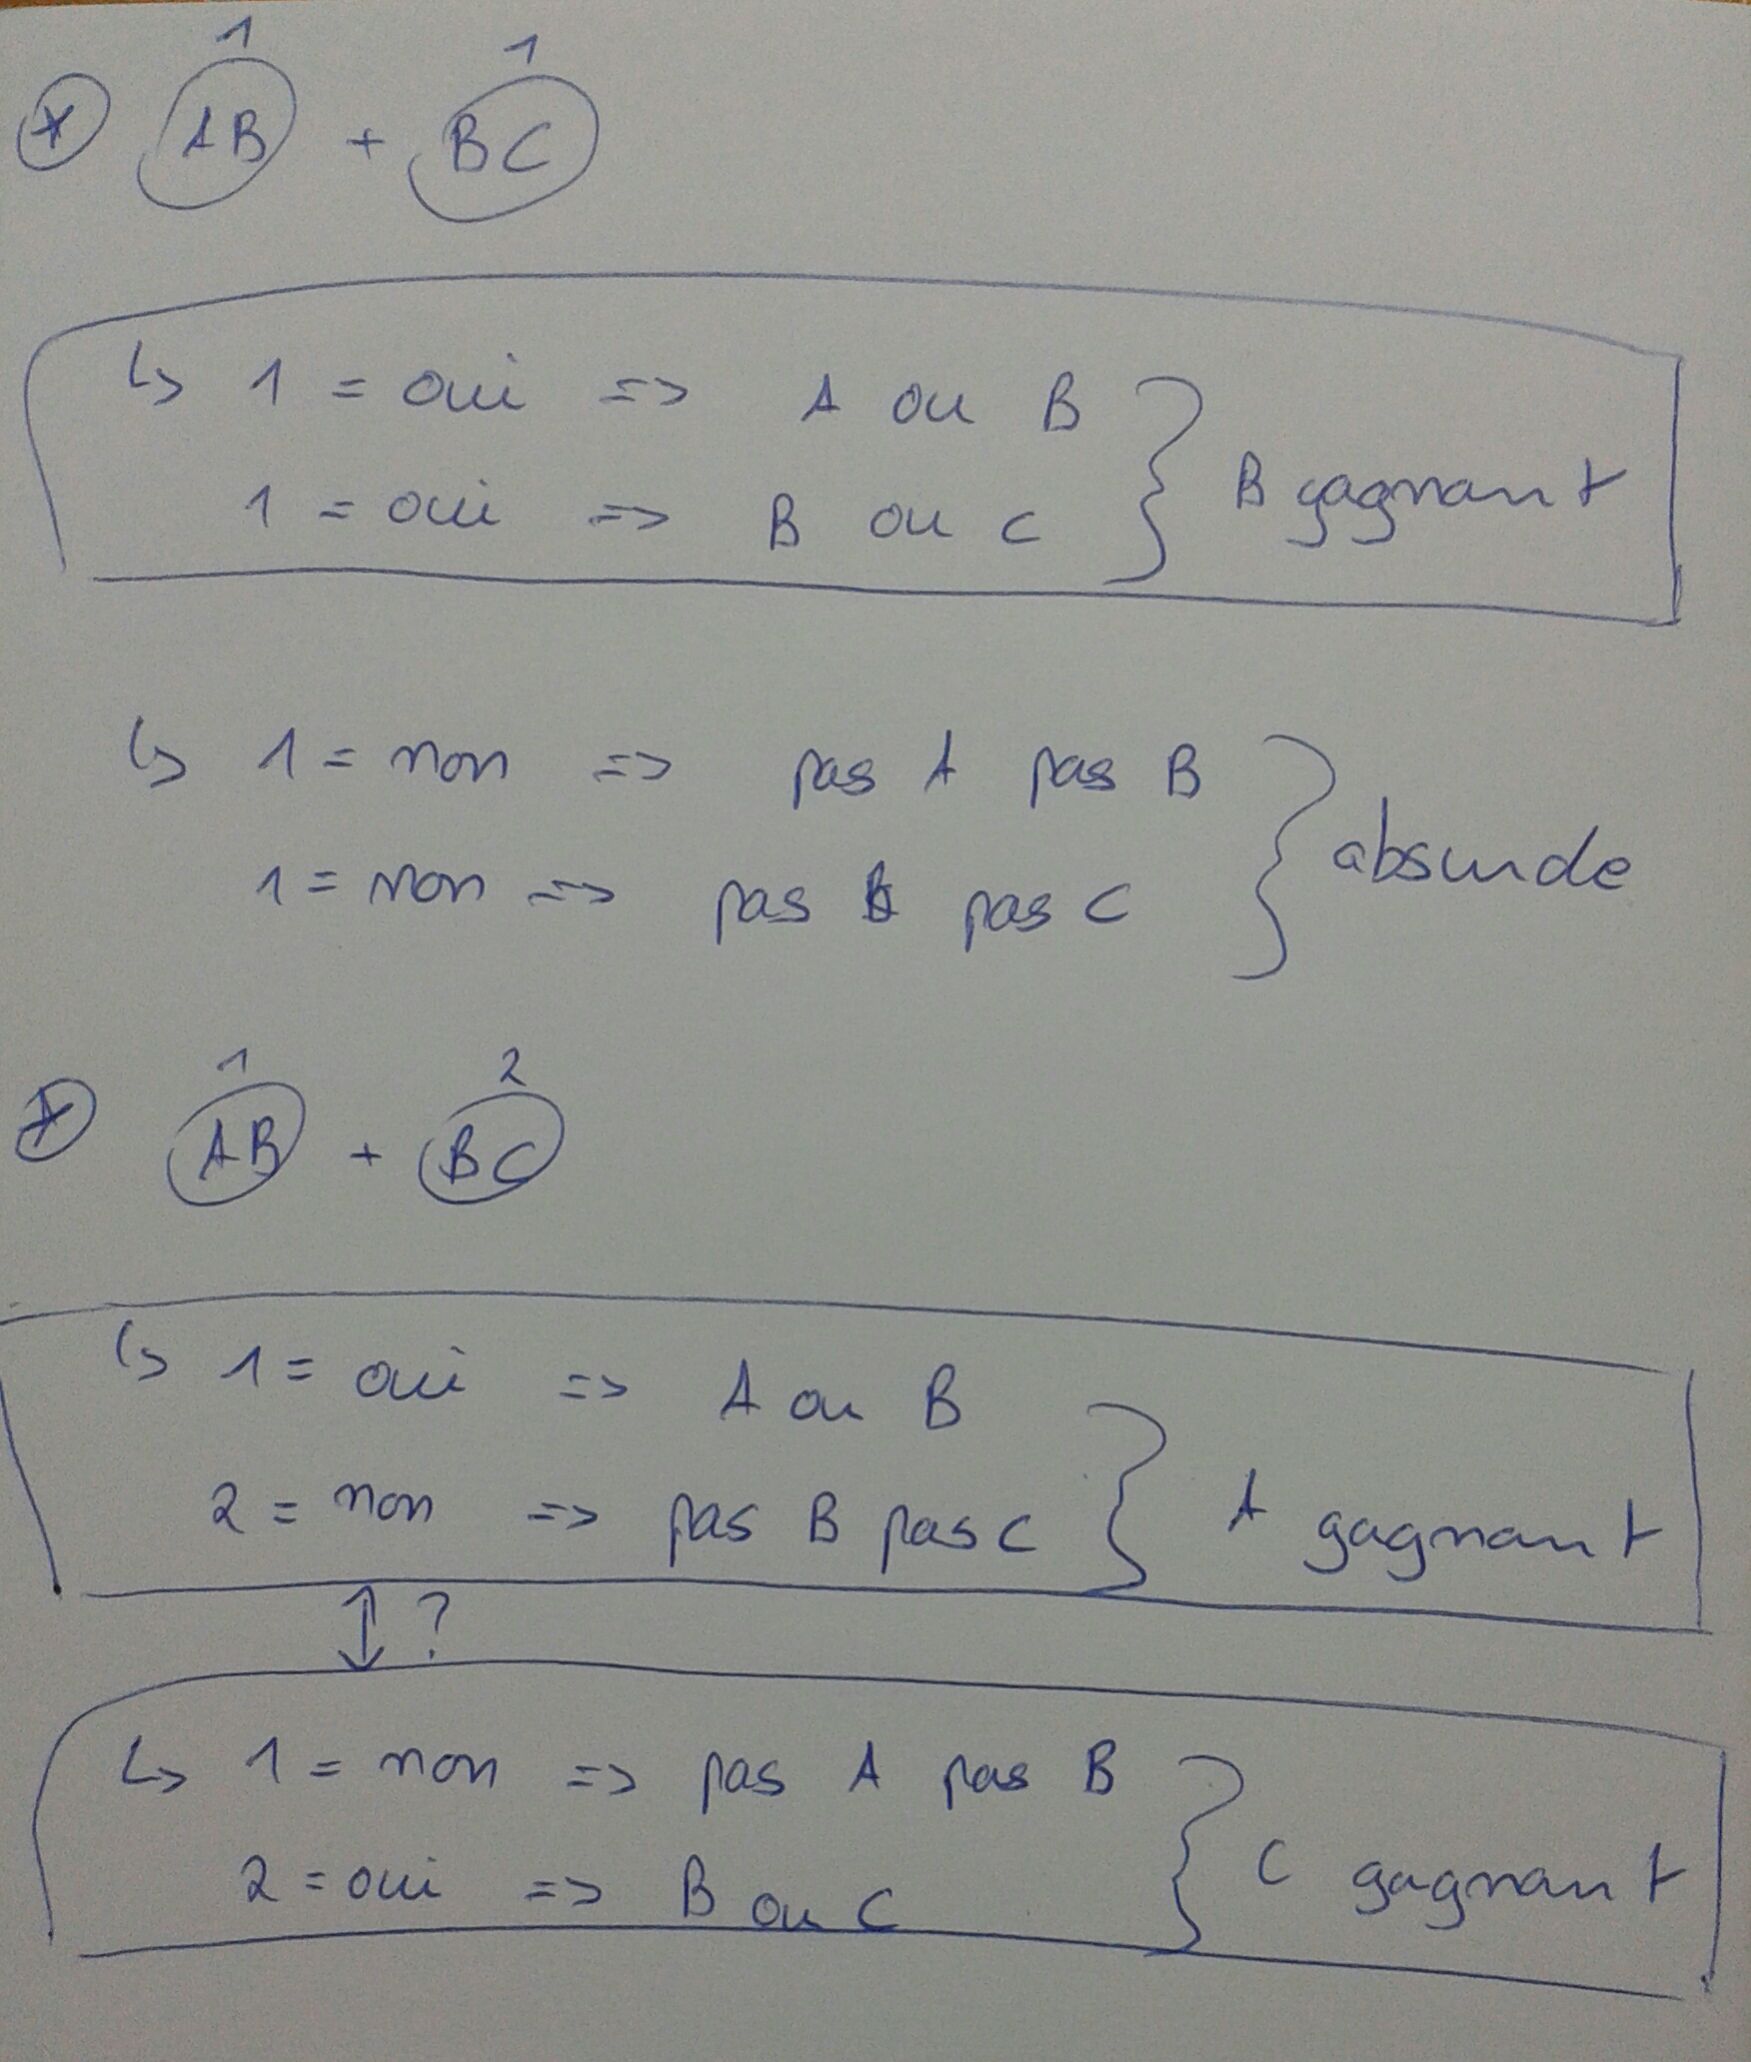 1 1
* AB + BC
↳ 1 = oui => A ou B
1 = oui => B ou C } B gagnant
↳ 1 = non => pas A pas B
1 = non => pas B pas C } absurde
1 2
* AB + BC
↳ 1 = oui => A ou B
2 = non => pas B pas C } A gagnant
↕ ?
↳ 1 = non => pas A pas B
2 = oui => B ou C } C gagnant